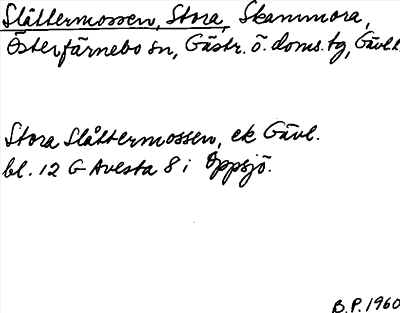 Slåttermossen, Stora, Skammora,
Österfärnebo sn, Gästr. ö. doms. tg, Gävl.l.
Stora Slåttermossen, ek Gävl.
bl. 12 G Avesta 8 i Öppsjö.
B.P. 1960